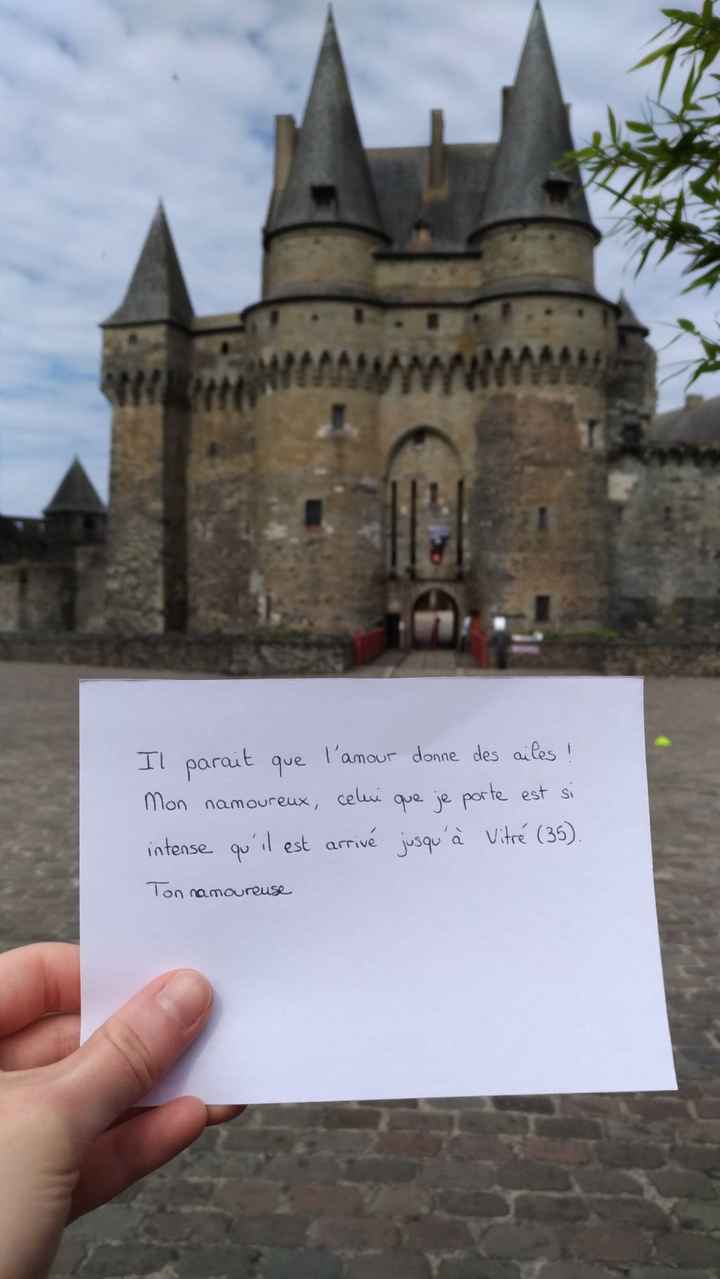 Il parait que l'amour donne des ailes !
Mon namoureux, celui que je porte est si
intense qu'il est arrivé jusqu'à Vitré (35).
Ton namoureuse